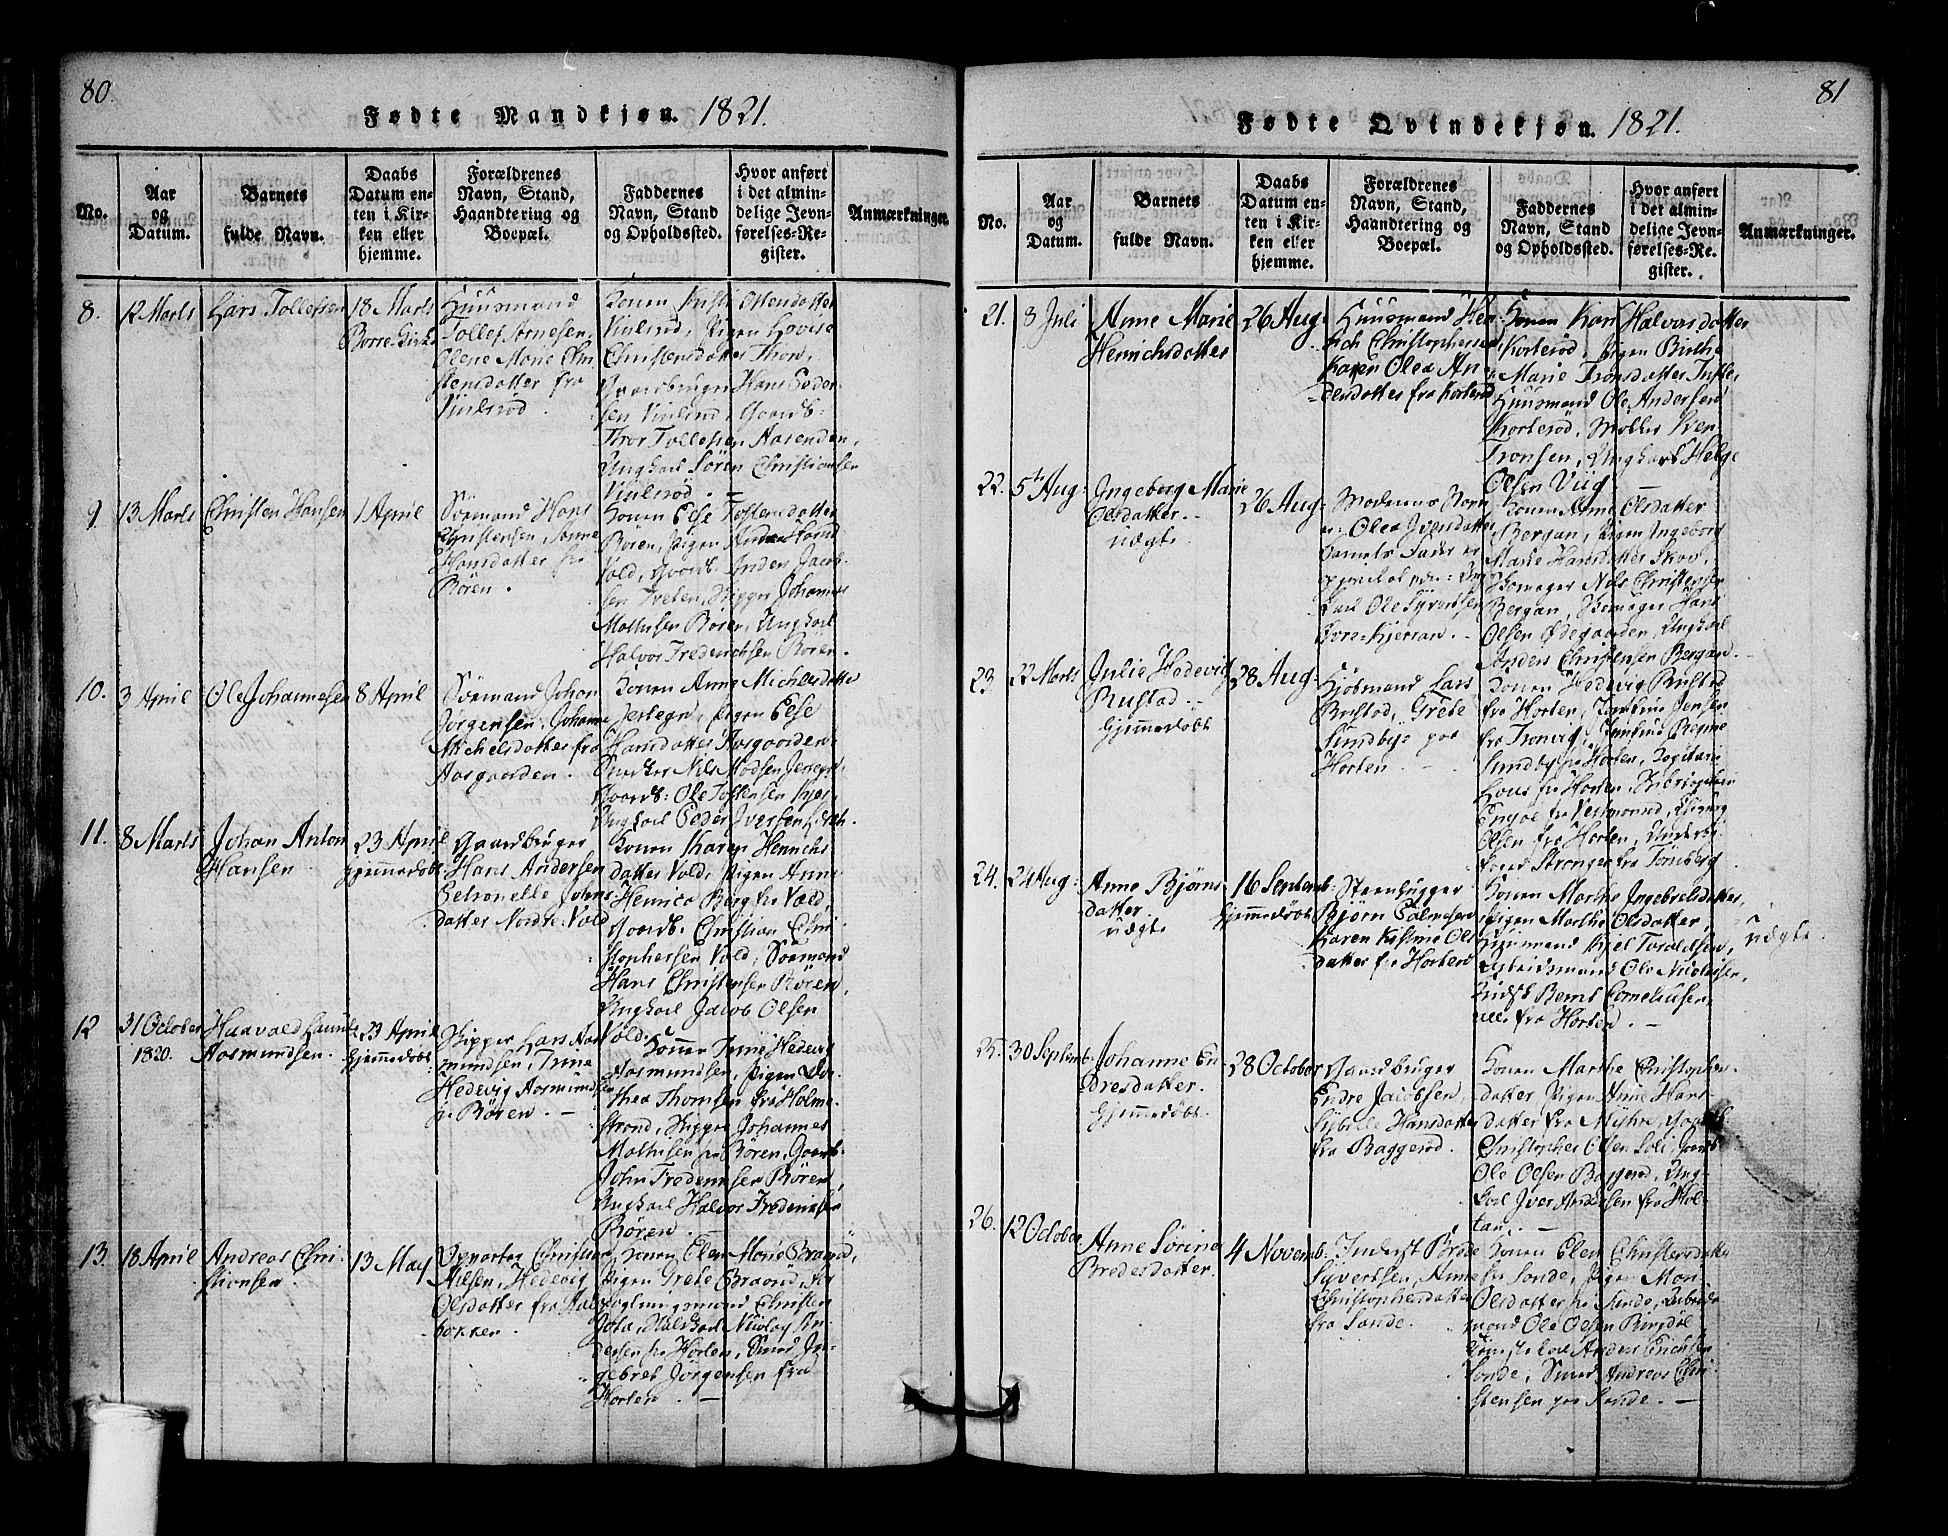 80.
Fødte Mandkjøn. 1821.
No.
Aar
og
Datum.
Barnets
fulde Navn.
Daabs
Datum en-
ten i Kir-
ken eller
hjemme.
Forældrenes
Navn, Stand,
Haandtering og
Boepæl.
Faddernes
Navn, Stand
og Opholdssted.
Hvor anført
i det almin-
delige Jevn-
førelses-Re-
gister.
Anmærkninger.
8.
12 Marts
Lars Tollefsen
18 Marts
Borre Kirke
Huusmand
Tollef
Olene Marie Chri
stensdatter fra
Viulsrød
Konen
Viulsrød, Pigen Lovise
Christensdatter Thon,
Gaardbruger Hans Peder-
sen Gaardb:
Thor Tollefsen Aasenden,
Ungkarl Sören Christiansen
Viulsrød
9.
13 Marts
Christen Hansen
1 April
Sömand Hans
Christensen,
Hansdatter fra
Rören.
Konen Else Tostensdatter
Rören, Pigen
Vold, Gaardb. Anders Jacob-
sen Tveten, Skipper Johannes
Mathisen Rören, Ungkarl
Halvor Frederichsen Rören.
10.
3 April
Ole Johannesen
8 April
Sömand Johan
Jörgensen, Johanne
Michelsdatter fra
Aasgaarden.
Konen Anne Michelsdatter
Pigen Else
Hansdatter Aasgaarden,
Nils Madsen
Gaardb: Ole Tostensen
Ungkarl Peder Iversen
11.
8 Marts
Johan Anton
Hansen
23 April
hjemmedøbt
Gaardbruger
Hans Andersen
Petronelle Johns
datter Nordre Vold
Konen Maren Henrichs
datter Vold, Pigen Anne
Henrica Berg fra Vold,
Gaardb. Christian Chri
stophersen Vold, Sömand
Hans Christensen Rören,
Ungkarl Jacob Olsen
Vold.
12
31 October
1820.
Haavald
Aasmundsen.
23 April
hjemmedøbt
Skipper Lars Aas
mundsen, Inne
Hedevig Aasmundsen
fra Rören. —
Konen Inne Hedevig
Aasmundsen, Pigen Do
thea Thomsen fra Holme-
strand, Skipper Johannes
Mathisen fra Rören, Gaardb:
John Frederichsen Rören,
Ungkarl Halvor Frederichsen
Rören. —
13.
18 April
Andreas Chri
stiansen.
13 May
Opvarter Christian
Nilsen, Hedevig
Olsdatter fra Aal
bakken.
Konen Elen Marie Braarud,
Pigen Grete Braarud,
Christen
Nicolay An
dersen fra Horten, Smed In
gebret Jörgensen fra
Horten. —
81
Fødte Qvindekjøn. 1821.
No.
Aar
og
Datum.
Barnets
fulde Navn.
Daabs
Datum en-
ten i Kir-
ken eller
hjemme.
Forældrenes
Navn, Stand,
Haandtering og
Boepæl.
Faddernes
Navn, Stand
og Opholdssted.
Hvor anført
i det almin-
delige Jevn-
førelses-Re-
gister.
Anmærkninger.
21.
8 Juli
Anne Marie
Henrichsdatter
26 Aug:
Huusmand Hen
rich Christophersen
Karen Olea An
dersdatter fra Korterød
Konen Kari Halvorsdatter
Korterød, Pigen Birthe
Marie Tronsdatter
Huusmand Ole Andersen
Korterød, Møller Sven
Tronsen, Ungkarl Helge
Olsen Viig —
22.
5te Aug:
Ingeborg Marie
Olsdatter.
uægte.
26 Aug:
Moderens Navn
er: Olea Iversdatter
Barnets Fader er
Ung
karl Ole Syvertsen
Konen Anne Olsdatter
Bergan, Pigen Ingeborg
Marie Hansdatter Skov,
Skomager Nils Christensen
Bergan, Skomager Hans
Olsen Ødegaarden, Ungkarl
Anders Christensen Bergan. —
23.
22 Marts
Julie Hedevig
Rustad.
hjemmedøbt
28 Aug:
Kjöbmand Lars
Rustad, Grete
Sundbye paa
Horten. —
Konen Hedevig Rustad
fra Horten, Jomfrue Jensen
fra Tronvig, Jomfrue Regine
Sundby fra Horten,
fra Horten,
Olsen fra Horten,
fra Tönsberg
24.
24 Aug:
Anne Bjørns
datter.
uægte
16 Septemb:
hjemmedøbt
Steenhugger
Bjørn Palmesen
Karen Kistine Ols
datter fra Horten
Konen Marthe Ingebretsdatter,
Pigen Marthe Olsdatter,
Huusmand Kjel Taraldsen,
Arbeidsmand Ole Nicolaisen,
Bernt Corneliusen,
alle fra Horten. —
uægte.
25.
30 Septemb:
Johanne En
dresdatter.
hjemmedøbt.
28 October
Gaardbruger
Endre Jacobsen,
Sybille Hansdatter
fra Baggerød.
Konen Marthe Christophers
datter, Pigen Anne Hans
datter fra Myhre, Gaardb
Christopher Olsen Soli, Gaardb
Ole Olsen Baggerød, Ung
karl Iver Andersen fra Hol
tan. —
26.
12 October
Anne Sörine
Bredesdatter.
4 Novemb:
Inderst Brede
Syvertsen, Anne
Christophersdatter
fra Sande.
Konen Elen Christensdatter
fra Sande, Pigen Mari
Olsdatter fra Sande,
mand Ole Olsen Ringdal
Anders Erichsen
Sande, Smed Andreas Chri
stensen paa Sande. —